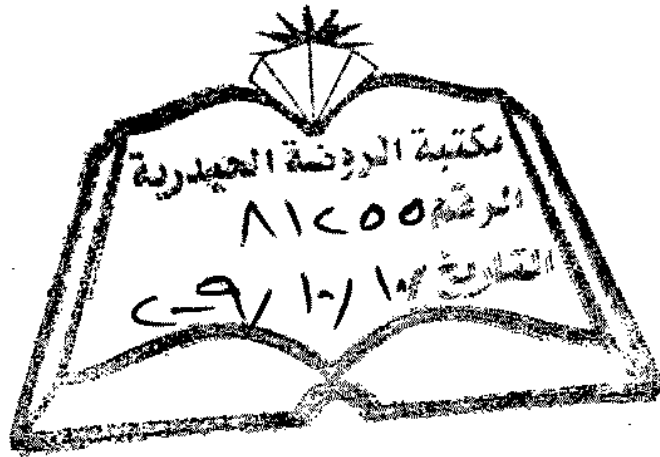 مكتبة الروضة الحيدرية
الرقم ٨١٢٥٥
التاريخ ١٠/ ١٠/ ٢٠٠٩